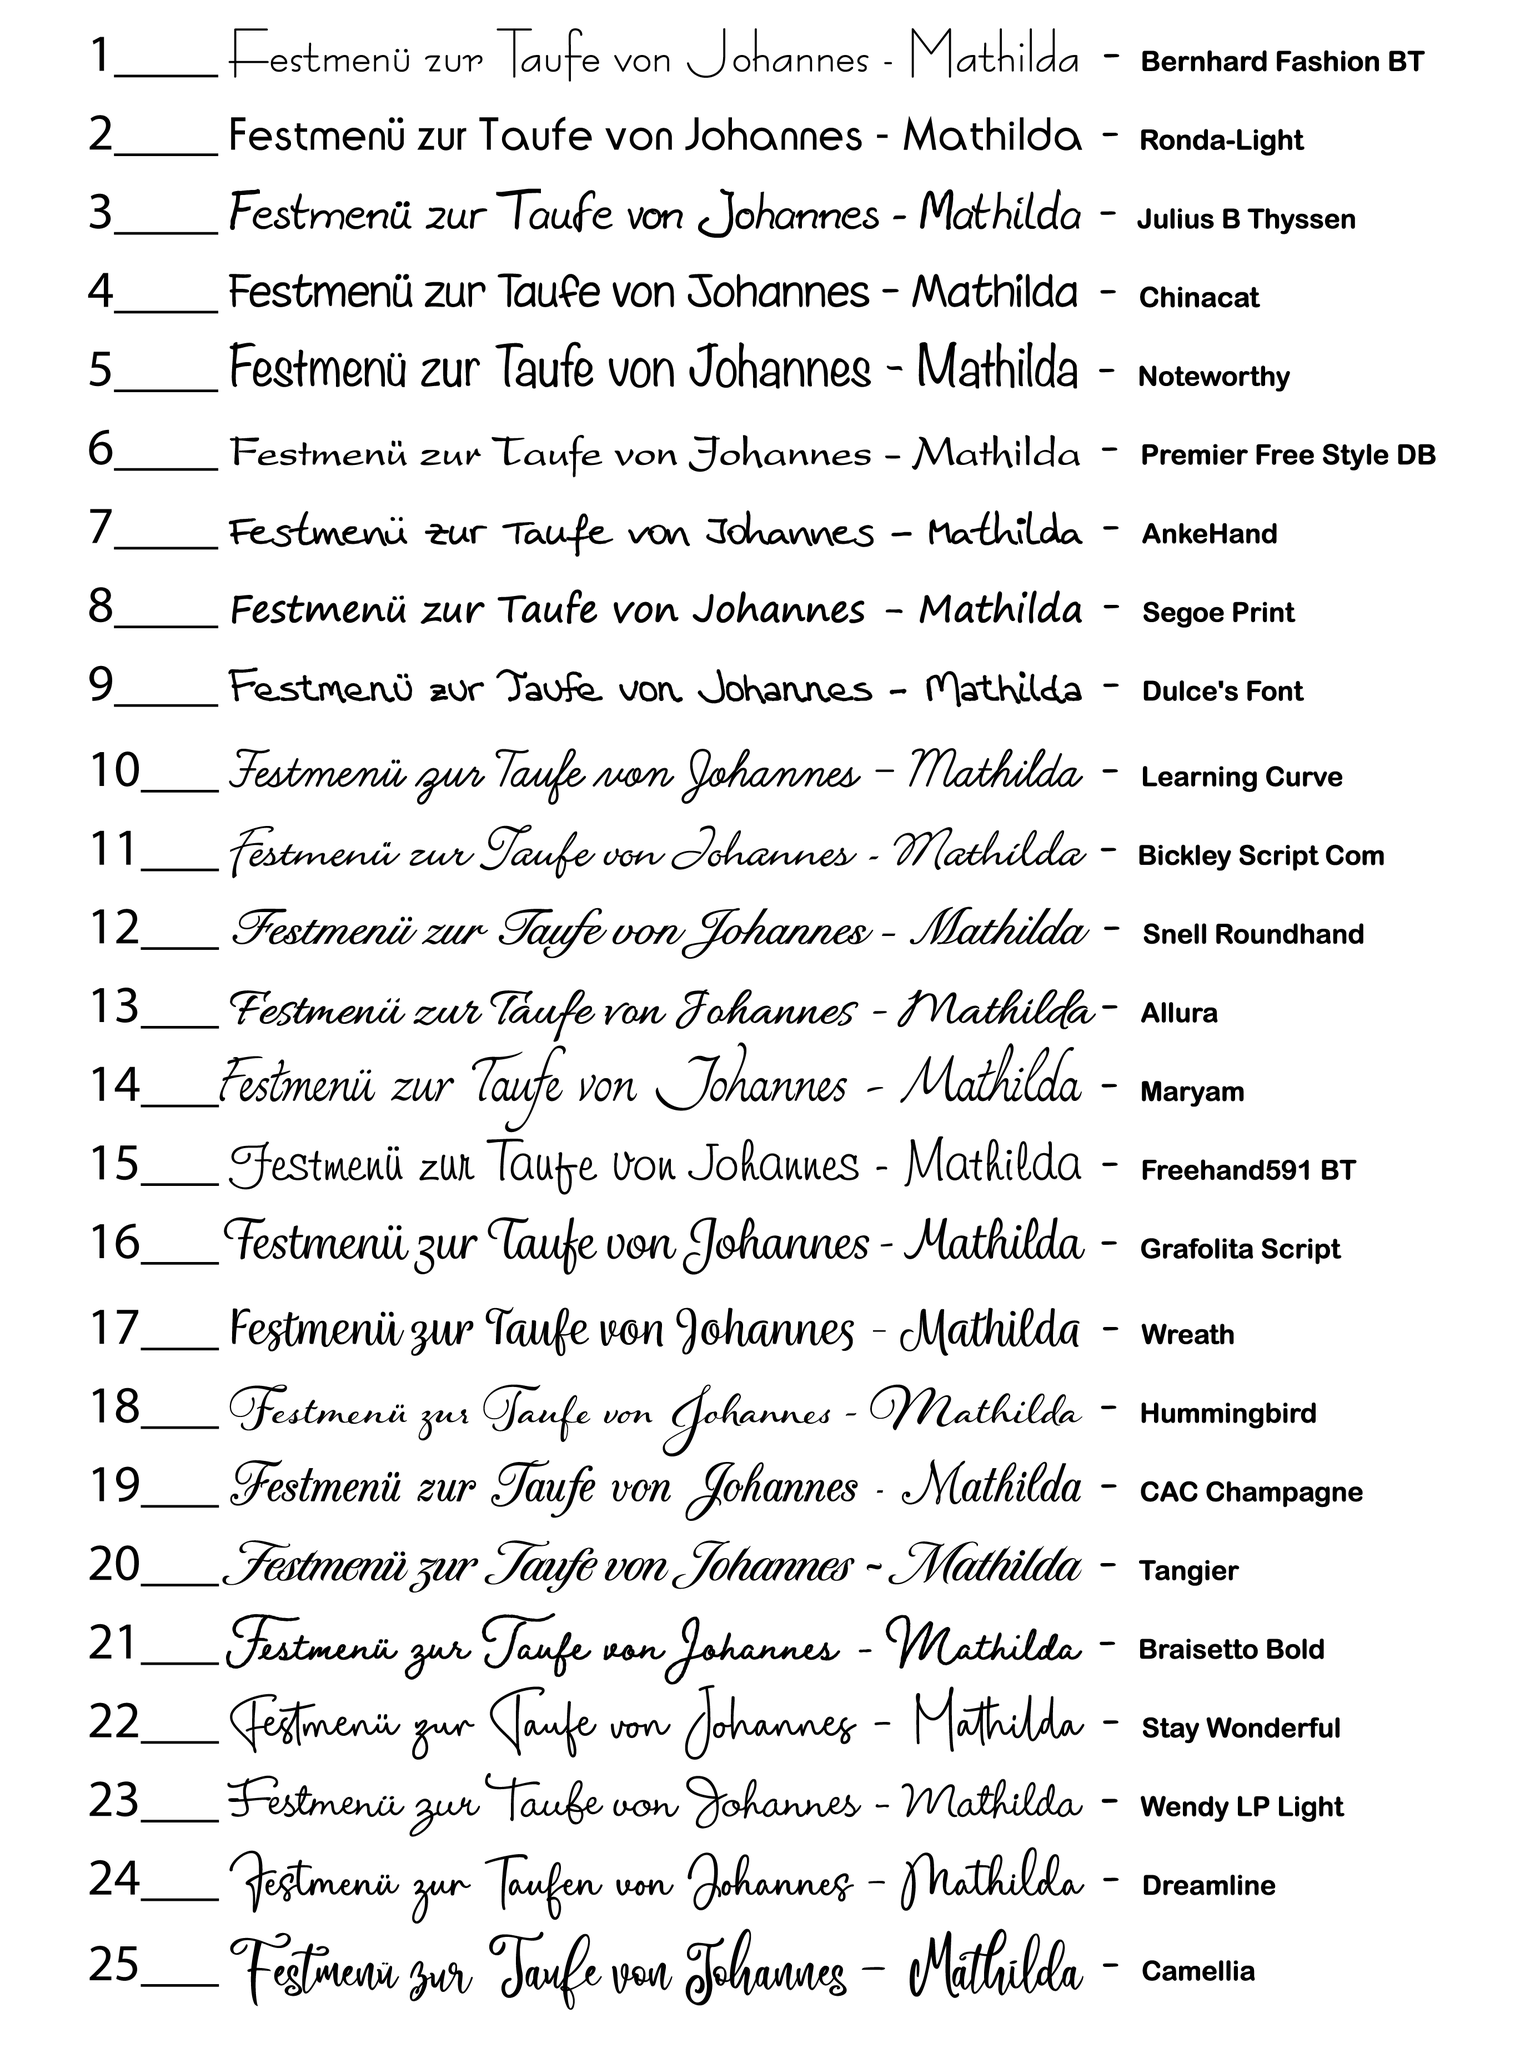 1____ Festmenü zur Taufe von Johannes - Mathilda - Bernhard Fashion BT
2____ Festmenü zur Taufe von Johannes - Mathilda - Ronda-Light
3____ Festmenü zur Taufe von Johannes - Mathilda - Julius B Thyssen
4____ Festmenü zur Taufe von Johannes - Mathilda - Chinacat
5____ Festmenü zur Taufe von Johannes - Mathilda - Noteworthy
6____ Festmenü zur Taufe von Johannes - Mathilda - Premier Free Style DB
7____ Festmenü zur Taufe von Johannes - Mathilda - AnkeHand
8____ Festmenü zur Taufe von Johannes - Mathilda - Segoe Print
9____ Festmenü zur Taufe von Johannes - Mathilda - Dulce's Font
10___ Festmenü zur Taufe von Johannes - Mathilda - Learning Curve
11___ Festmenü zur Taufe von Johannes - Mathilda - Bickley Script Com
12___ Festmenü zur Taufe von Johannes - Mathilda - Snell Roundhand
13___ Festmenü zur Taufe von Johannes - Mathilda - Allura
14___ Festmenü zur Taufe von Johannes - Mathilda - Maryam
15___ Festmenü zur Taufe von Johannes - Mathilda - Freehand591 BT
16___ Festmenü zur Taufe von Johannes - Mathilda - Grafolita Script
17___ Festmenü zur Taufe von Johannes - Mathilda - Wreath
18___ Festmenü zur Taufe von Johannes - Mathilda - Hummingbird
19___ Festmenü zur Taufe von Johannes - Mathilda - CAC Champagne
20___ Festmenü zur Taufe von Johannes ~ Mathilda - Tangier
21___ Festmenü zur Taufe von Johannes - Mathilda - Braisetto Bold
22___ Festmenü zur Taufe von Johannes - Mathilda - Stay Wonderful
23___ Festmenü zur Taufe von Johannes - Mathilda - Wendy LP Light
24___ Festmenü zur Taufen von Johannes - Mathilda - Dreamline
25___ Festmenü zur Taufe von Johannes - Mathilda - Camellia